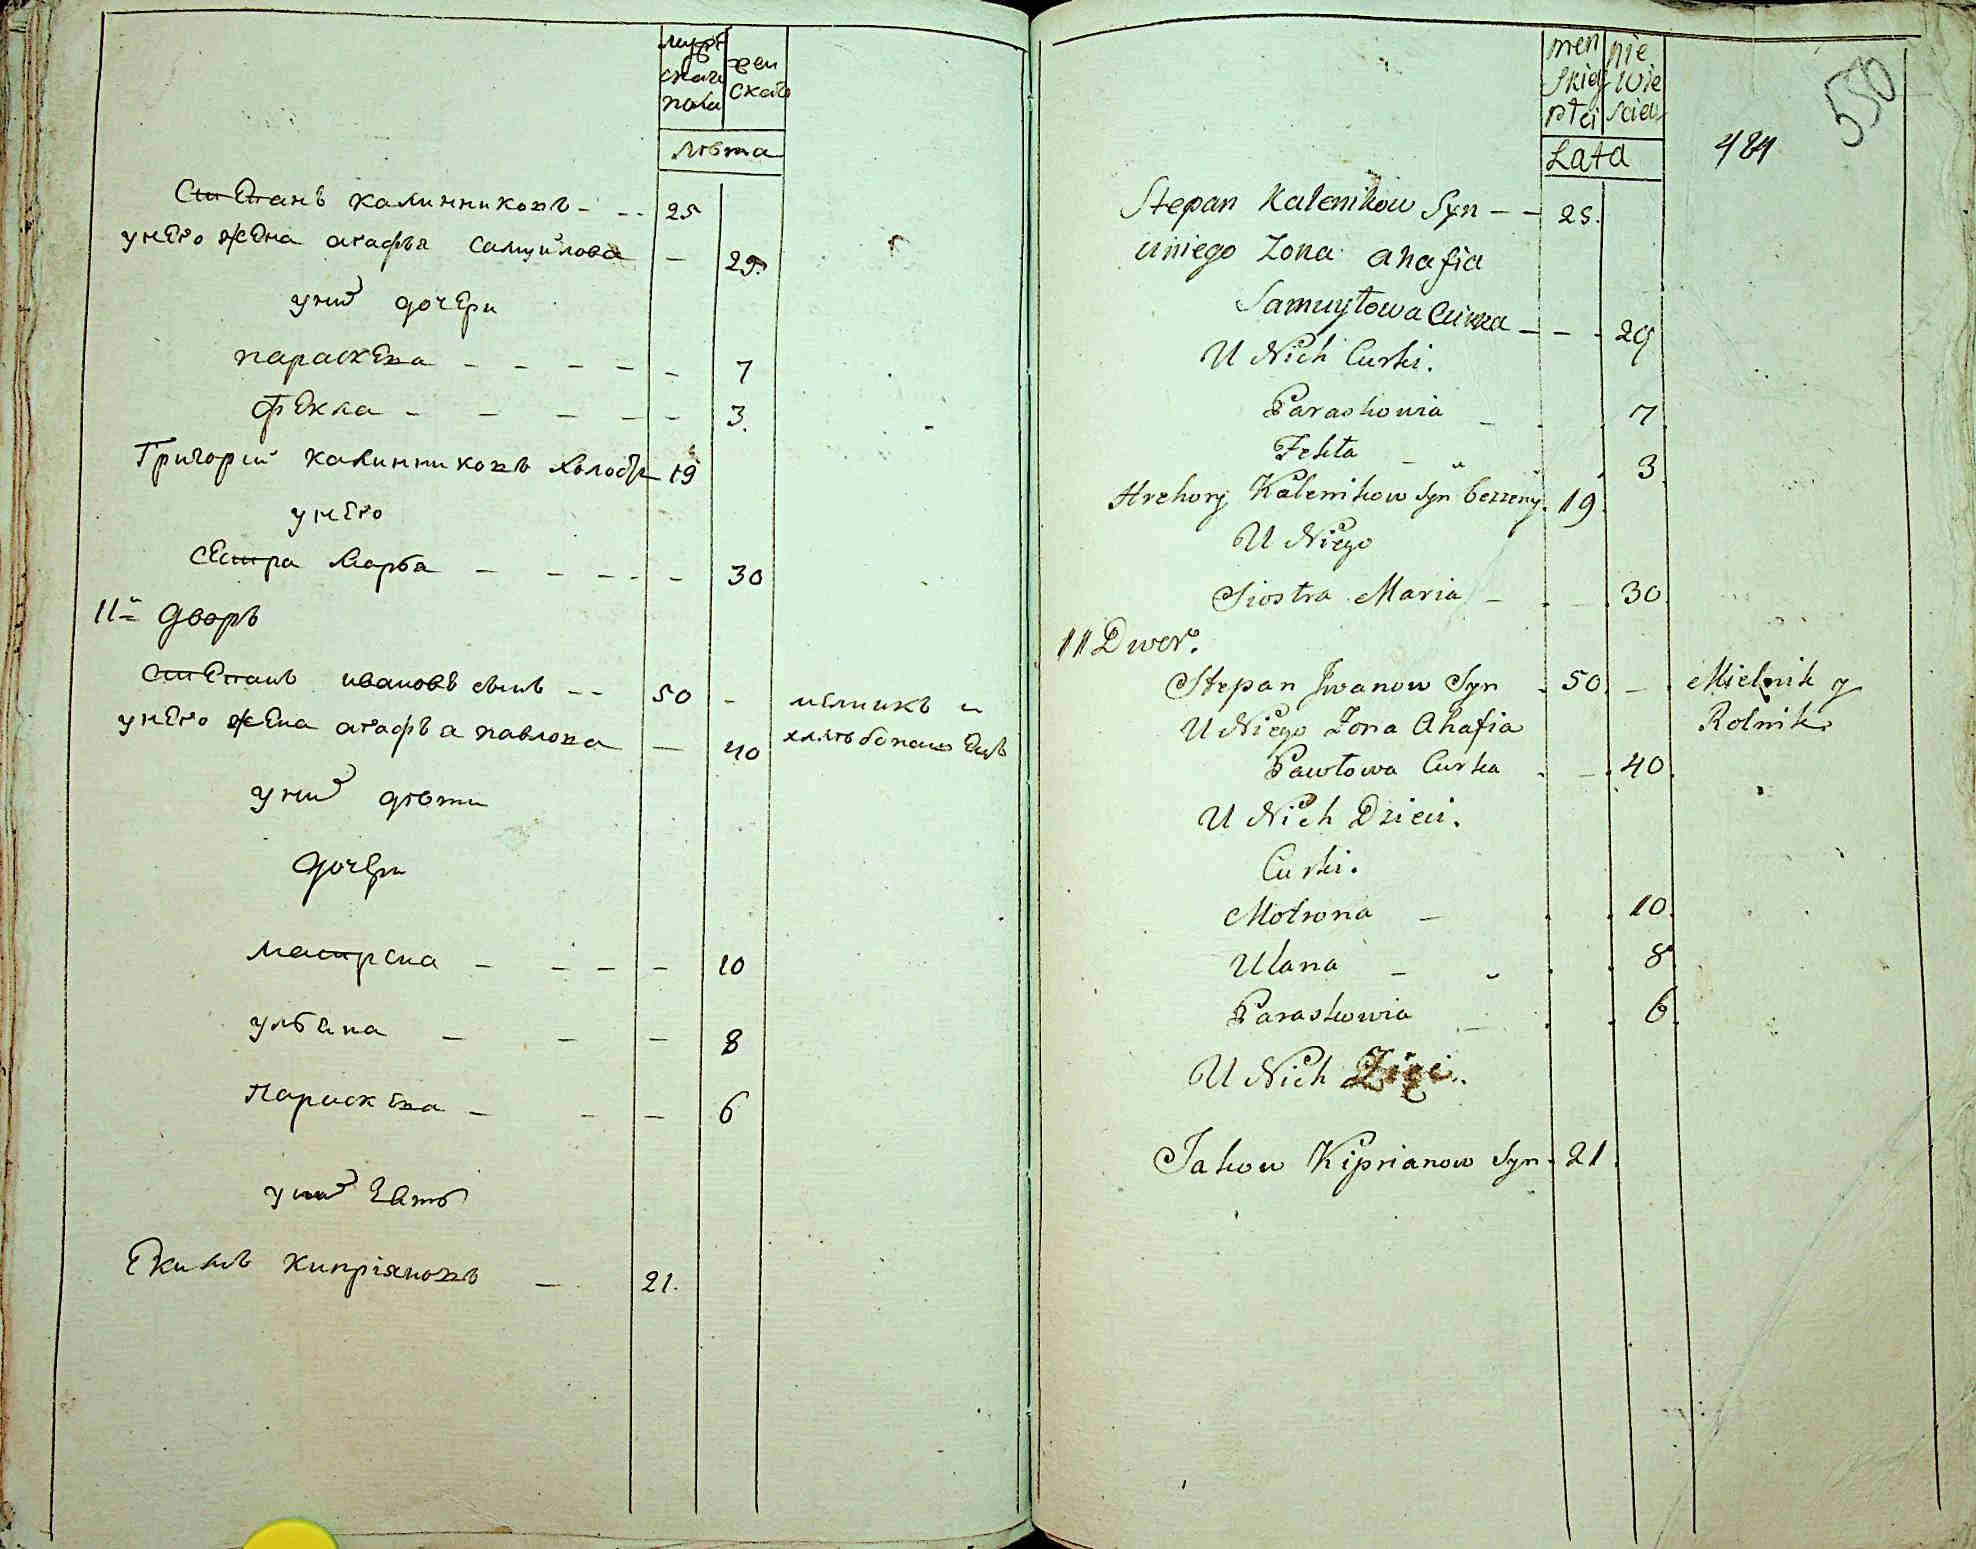 мужескаго пола
женскаго
лѣта
Степанъ калинниковъ 25
у него жена агафья самуйлова 29
у них дочери
параскева 7
фекла 3.
Григорий калинниковъ холостъ 19
у него
сестра Марфа 30
11й дворъ
Степанъ ивановъ сынъ 50 мелникъ и
у него жена агафья павлова 40 хлѣбопашецъ
у них дѣти
дочери
матрена 10
ульяна 8
Параскева 6
у них зять
Екимъ киприяновъ 21.
men skiej płci
nie wie sciej
Lata
484
550
Stepan Kalenikow Syn 25.
U niego Zona ahafia
Samuyłowa Curka 29
U Nich Curki.
Paraskowia 7
Fekła 3
Hrehory Kalenikow Syn bezzeny. 19
U Niego
Siostra Maria 30
11 Dwor.
Stepan Jwanow Syn 50 Mielnik y
U Niego Zona Ahafia Rolnik
Pawłowa Curka 40
U Nich Dzieci.
Curki.
Motrona 10
Ulana 8
Paraskowia 6
U Nich Zięć.
Jakow Kiprianow Syn 21